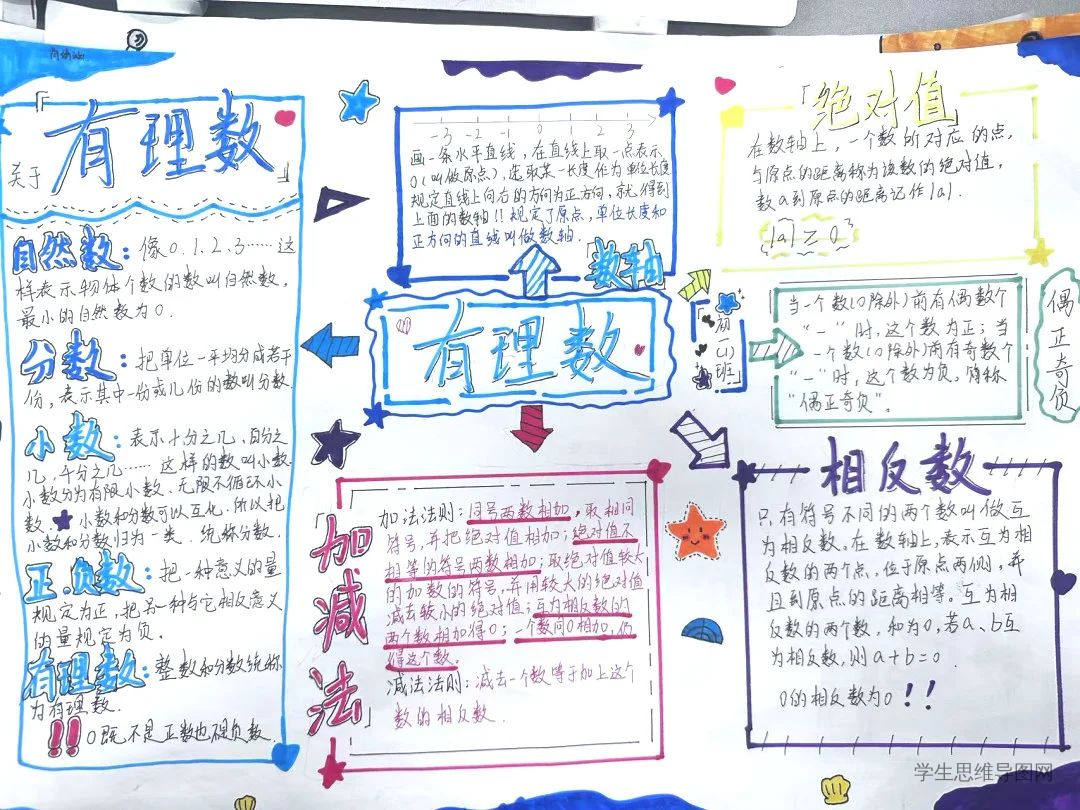 「
关于
有理数
」
自然数：像0.1.2.3……这
样表示物体个数的数叫自然数，
最小的自然数为0.
分数：把单位一平均分成若干
份，表示其中一份或几份的数叫分数.
小数：表示十分之几，百分之
几，千分之几……这样的数叫小数.
小数分为有限小数、无限不循环小
数.★小数和分数可以互化.所以把
小数和分数归为一类.统称分数.
正.负数：把一种意义的量
规定为正，把另一种与它相反意义
的量规定为负。
有理数：整数和分数统称
为有理数.
!!0既不是正数也不是负数.
-3 -2 -1 0 1 2 3
画一条水平直线，在直线上取一点表示
0(叫做原点)，选取某一长度作为单位长度
规定直线上向右的方向为正方向，就得到
上面的数轴!!规定了原点，单位长度和
正方向的直线叫做数轴.
数轴
有理数
「初(1)班」
加减法
加法法则：同号两数相加，取相同
符号，并把绝对值相加；绝对值不
相等的符号两数相加；取绝对值较大
的加数的符号，并用较大的绝对值
减去较小的绝对值；互为相反数的
两个数相加得0；一个数同0相加，仍
得这个数。
减法法则：减去一个数等于加上这个
数的相反数.
「绝对值
在数轴上，一个数所对应的点，
与原点的距离称为该数的绝对值，
数a到原点的距离记作|a|.
|a|≥0
当一个数(0除外)前有偶数个
“-”时，这个数为正；当
一个数(0除外)前有奇数个
“-”时，这个数为负，简称
“偶正奇负”。
偶正奇负
相反数
只有符号不同的两个数叫做互
为相反数。在数轴上，表示互为相
反数的两个点，位于原点两侧，并
且到原点的距离相等。互为相
反数的两个数，和为0，若a、b互
为相反数，则a+b=0.
0的相反数为0!!
学生思维导图网